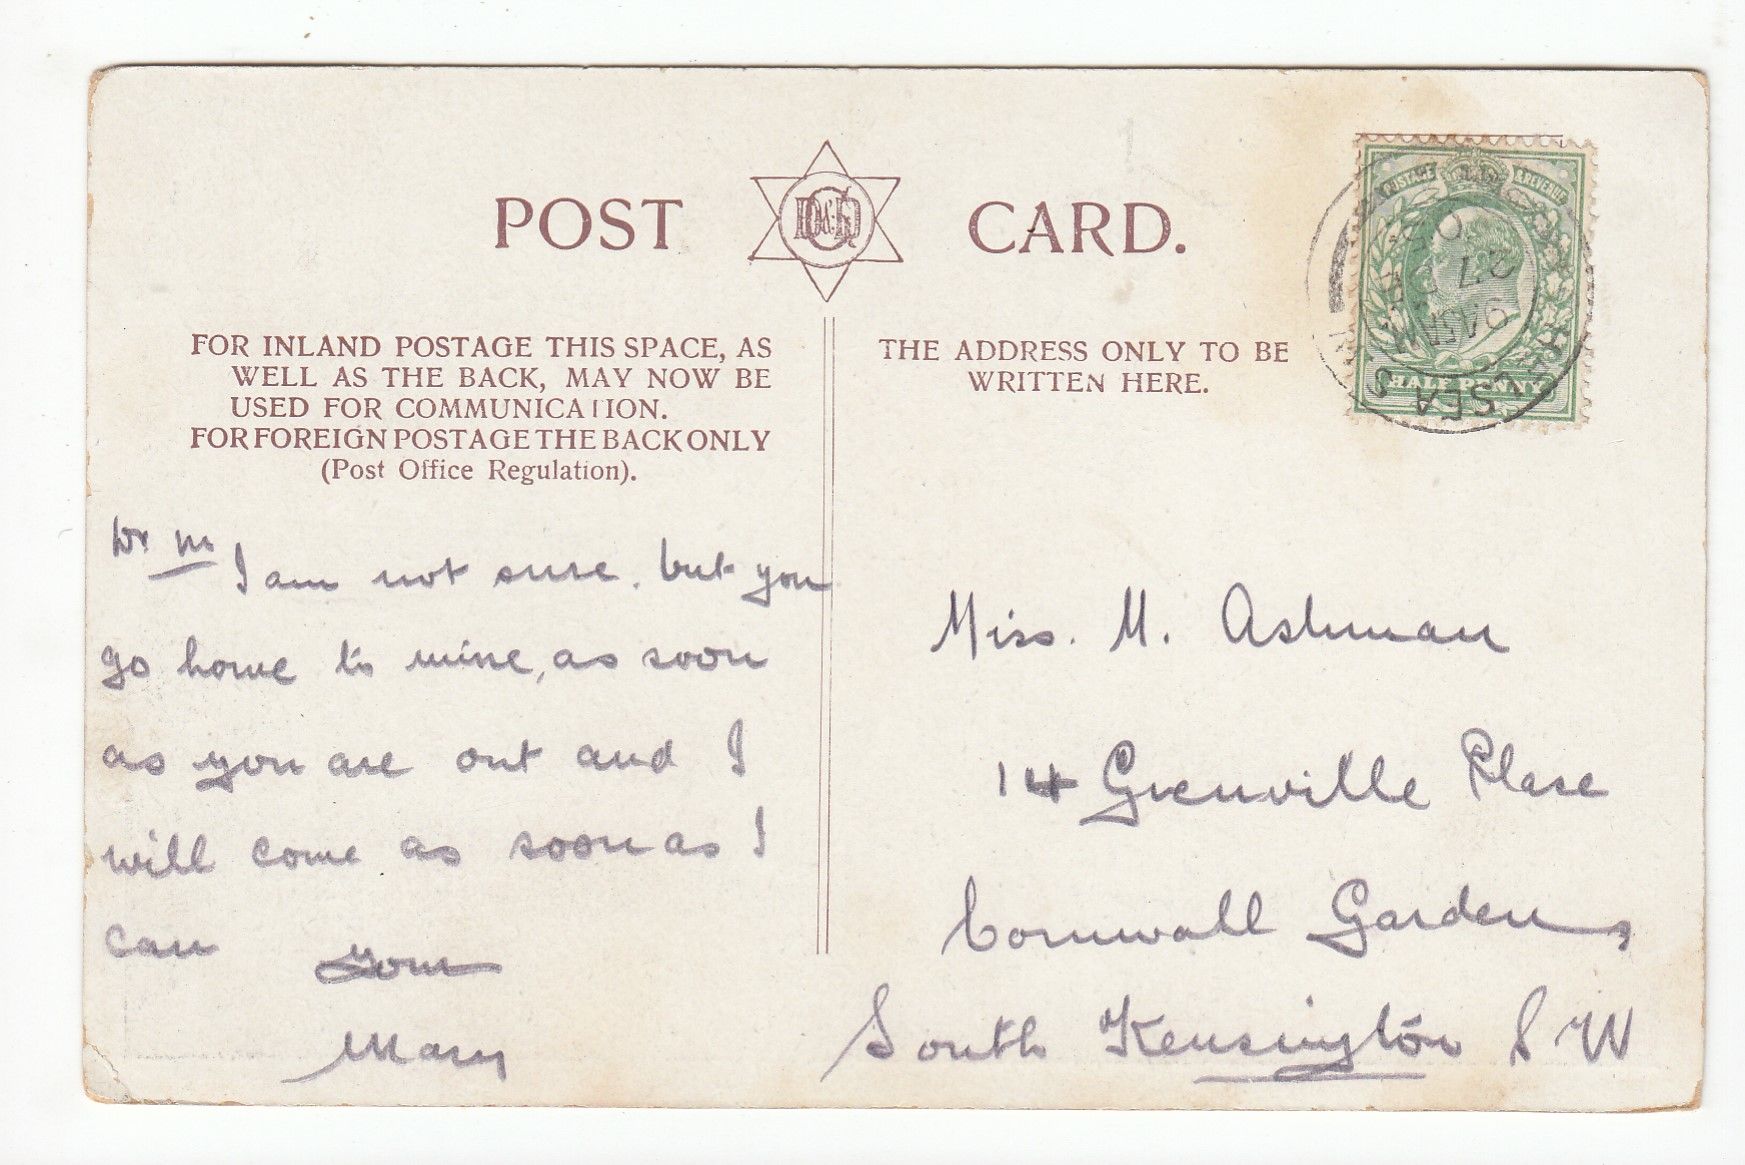 POST CARD.
FOR INLAND POSTAGE THIS SPACE, AS
WELL AS THE BACK, MAY NOW BE
USED FOR COMMUNICATION.
FOR FOREIGN POSTAGE THE BACK ONLY
(Post Office Regulation).
THE ADDRESS ONLY TO BE
WRITTEN HERE.
POSTAGE & REVENUE
HALF PENNY
Dr M
I am not sure. but you
go home to mine, as soon
as you are out and I
will come as soon as I
can
Mary
Miss. M. Ashman
14 Grenville Place
Cornwall Gardens
South Kensington S W